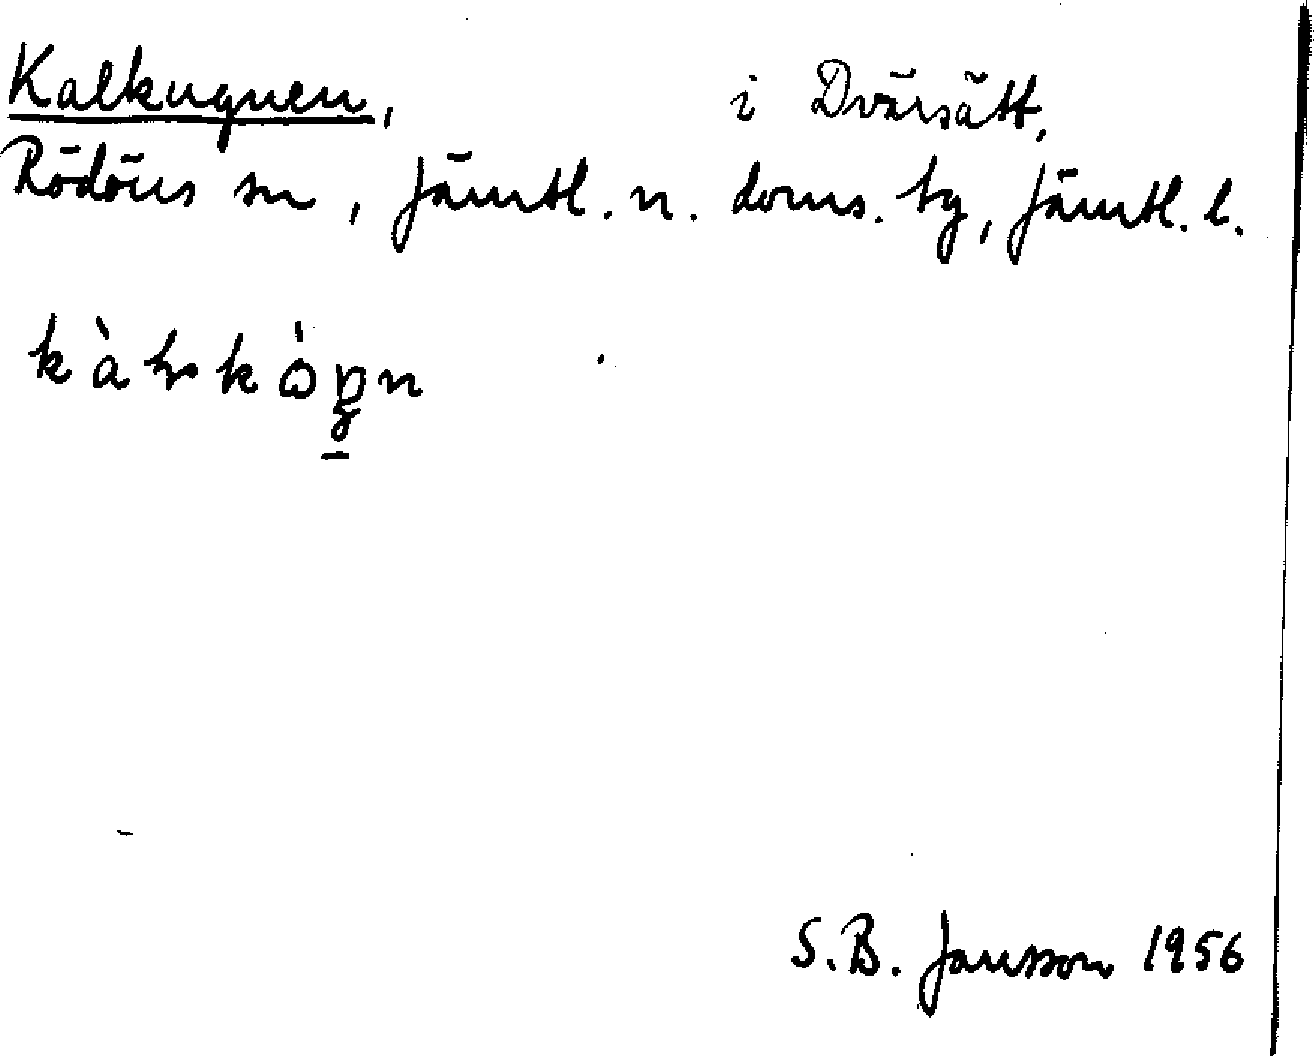 Kalkugnen, i Dvärsätt,
Rödöns sn, Jämtl. n. doms. tg, Jämtl. l.
S.B. Jansson 1956